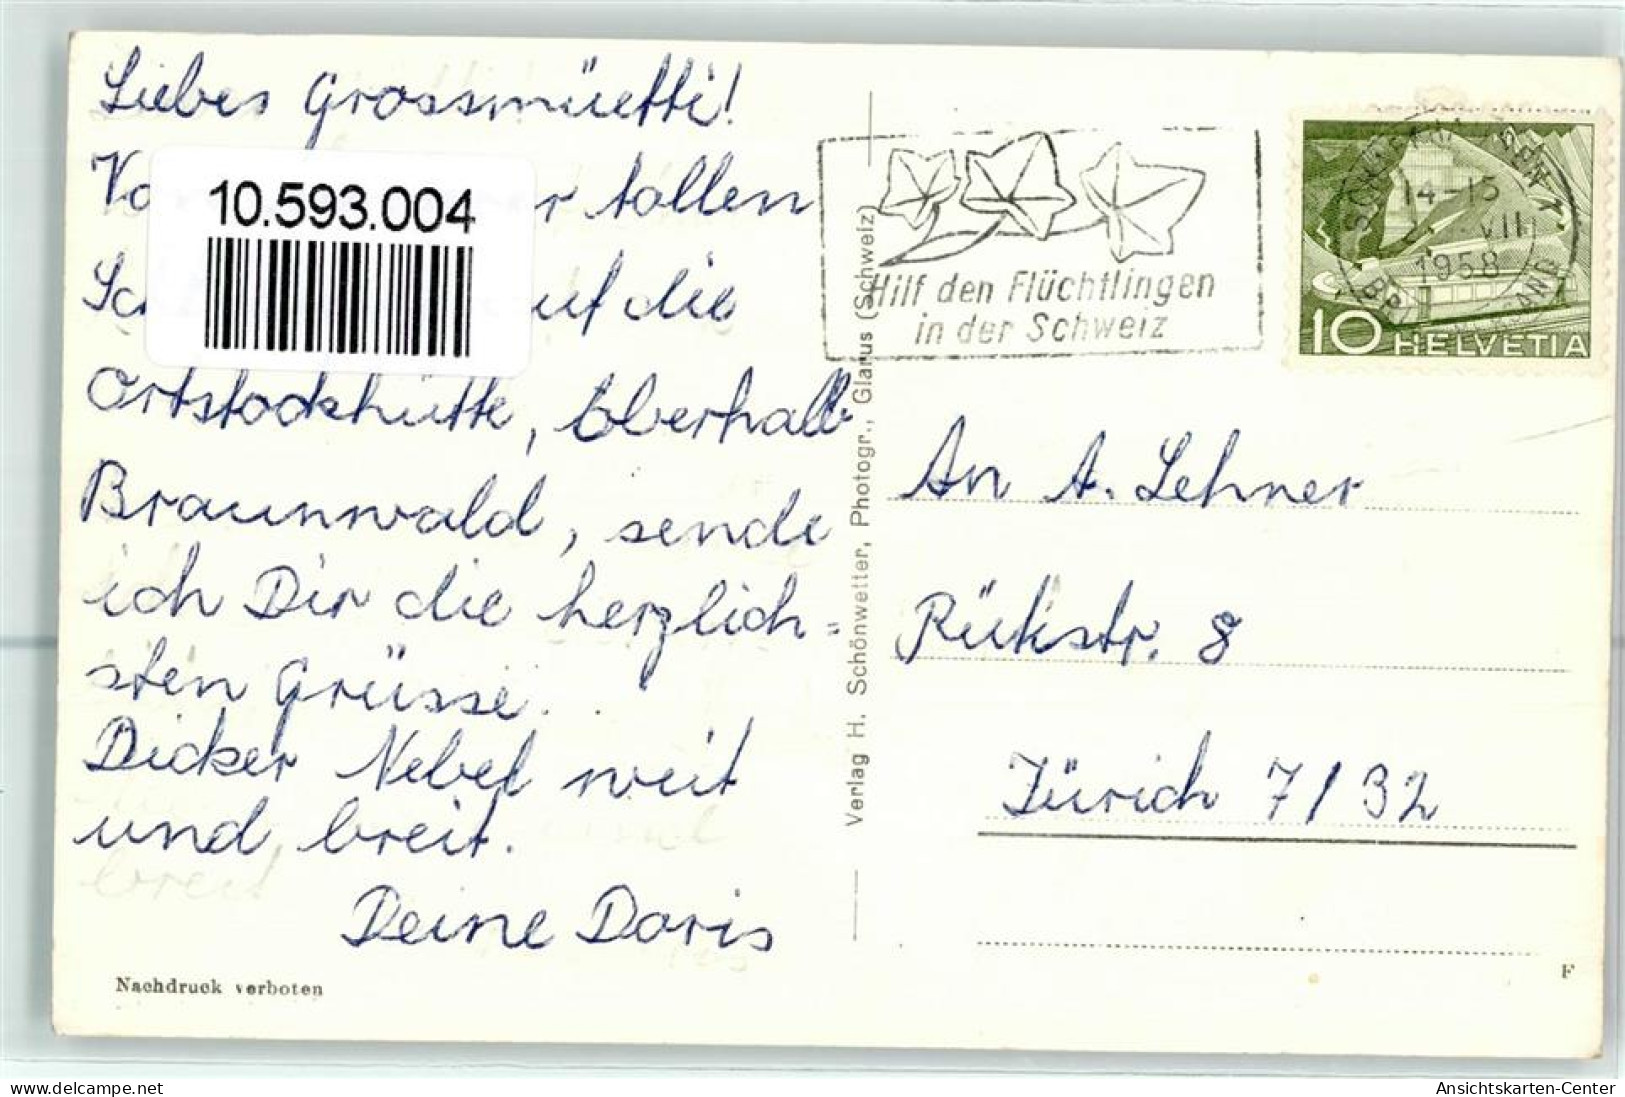 Liebes Grossmüetti!
tollen
auf die
Ortstockhütte, oberhalb
Braunwald, sende
ich Dir die herzlich=
sten Grüsse.
Dicker Nebel weit
und breit.
Deine Doris
Nachdruck verboten
10.593.004
Verlag H. Schönwetter, Photogr., Glarus (Schweiz)
Hilf den Flüchtlingen
in der Schweiz
14-15
VII
1958
10 HELVETIA
An A. Lehner
Rütistr. 8
Zürich 7/32
F
delcampe.net
Ansichtskarten-Center